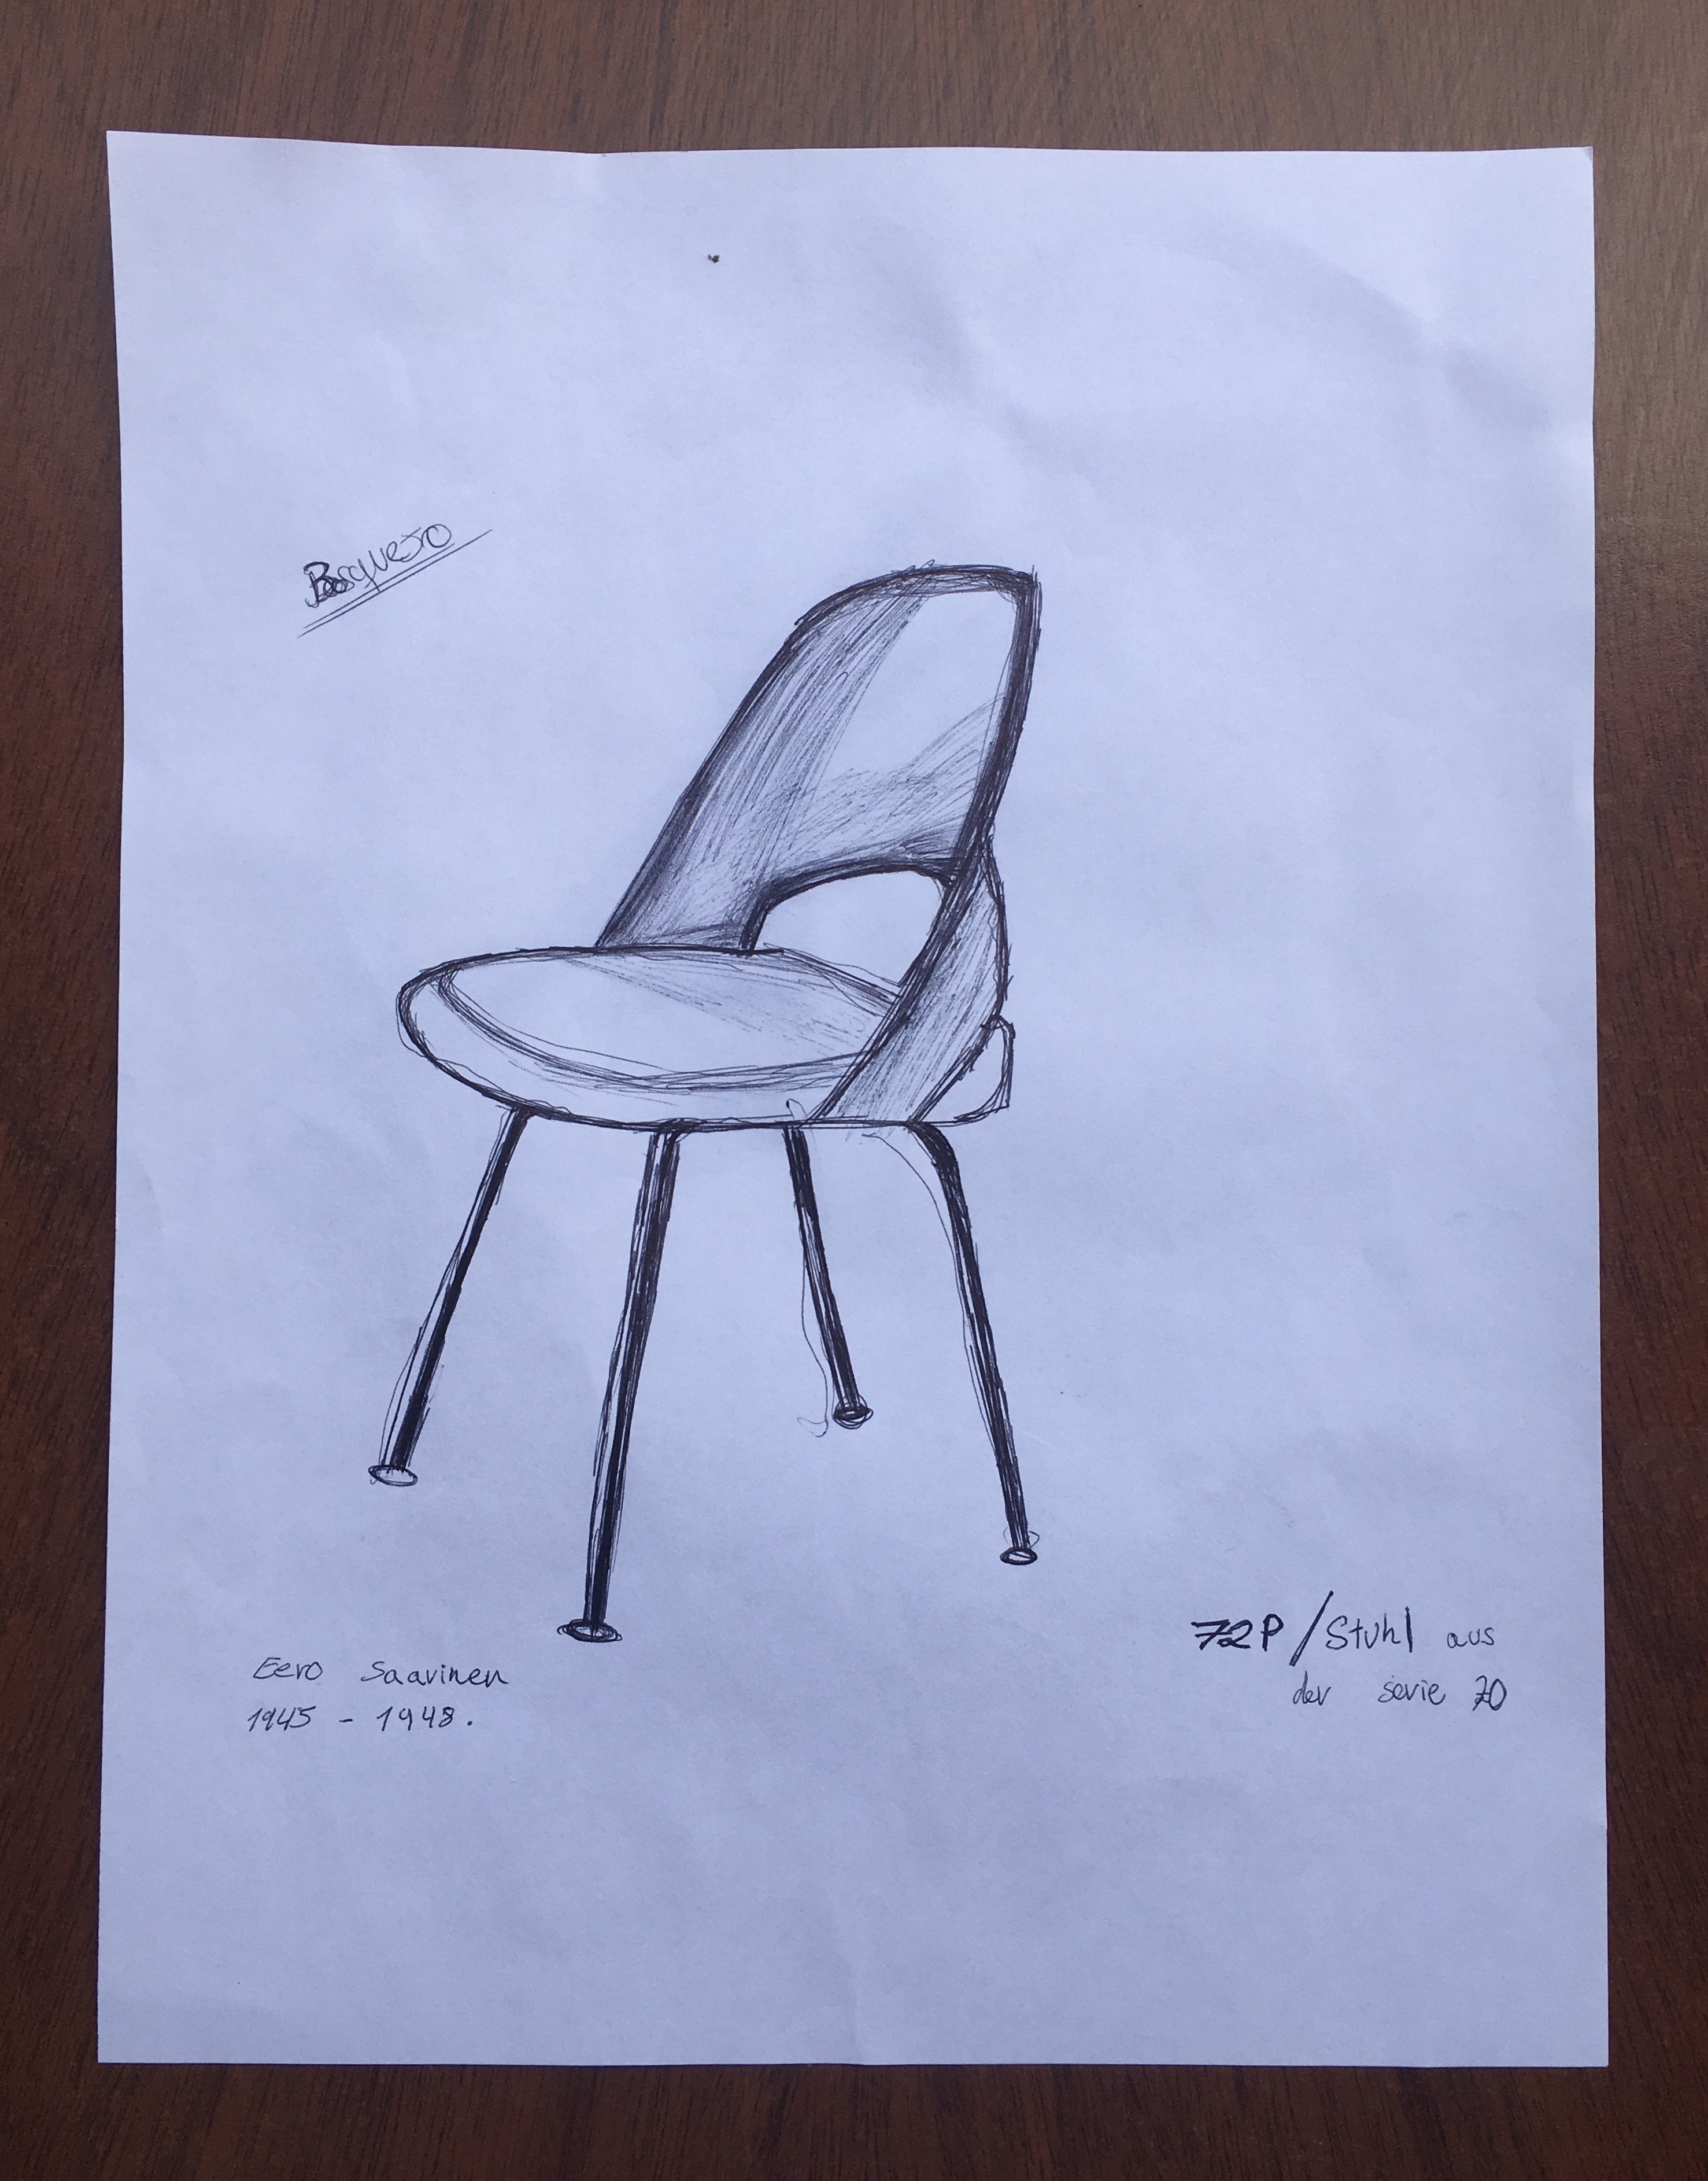 Bosquejo
Eero Saarinen
1945 - 1948.
72P / Stuhl aus
der serie 70